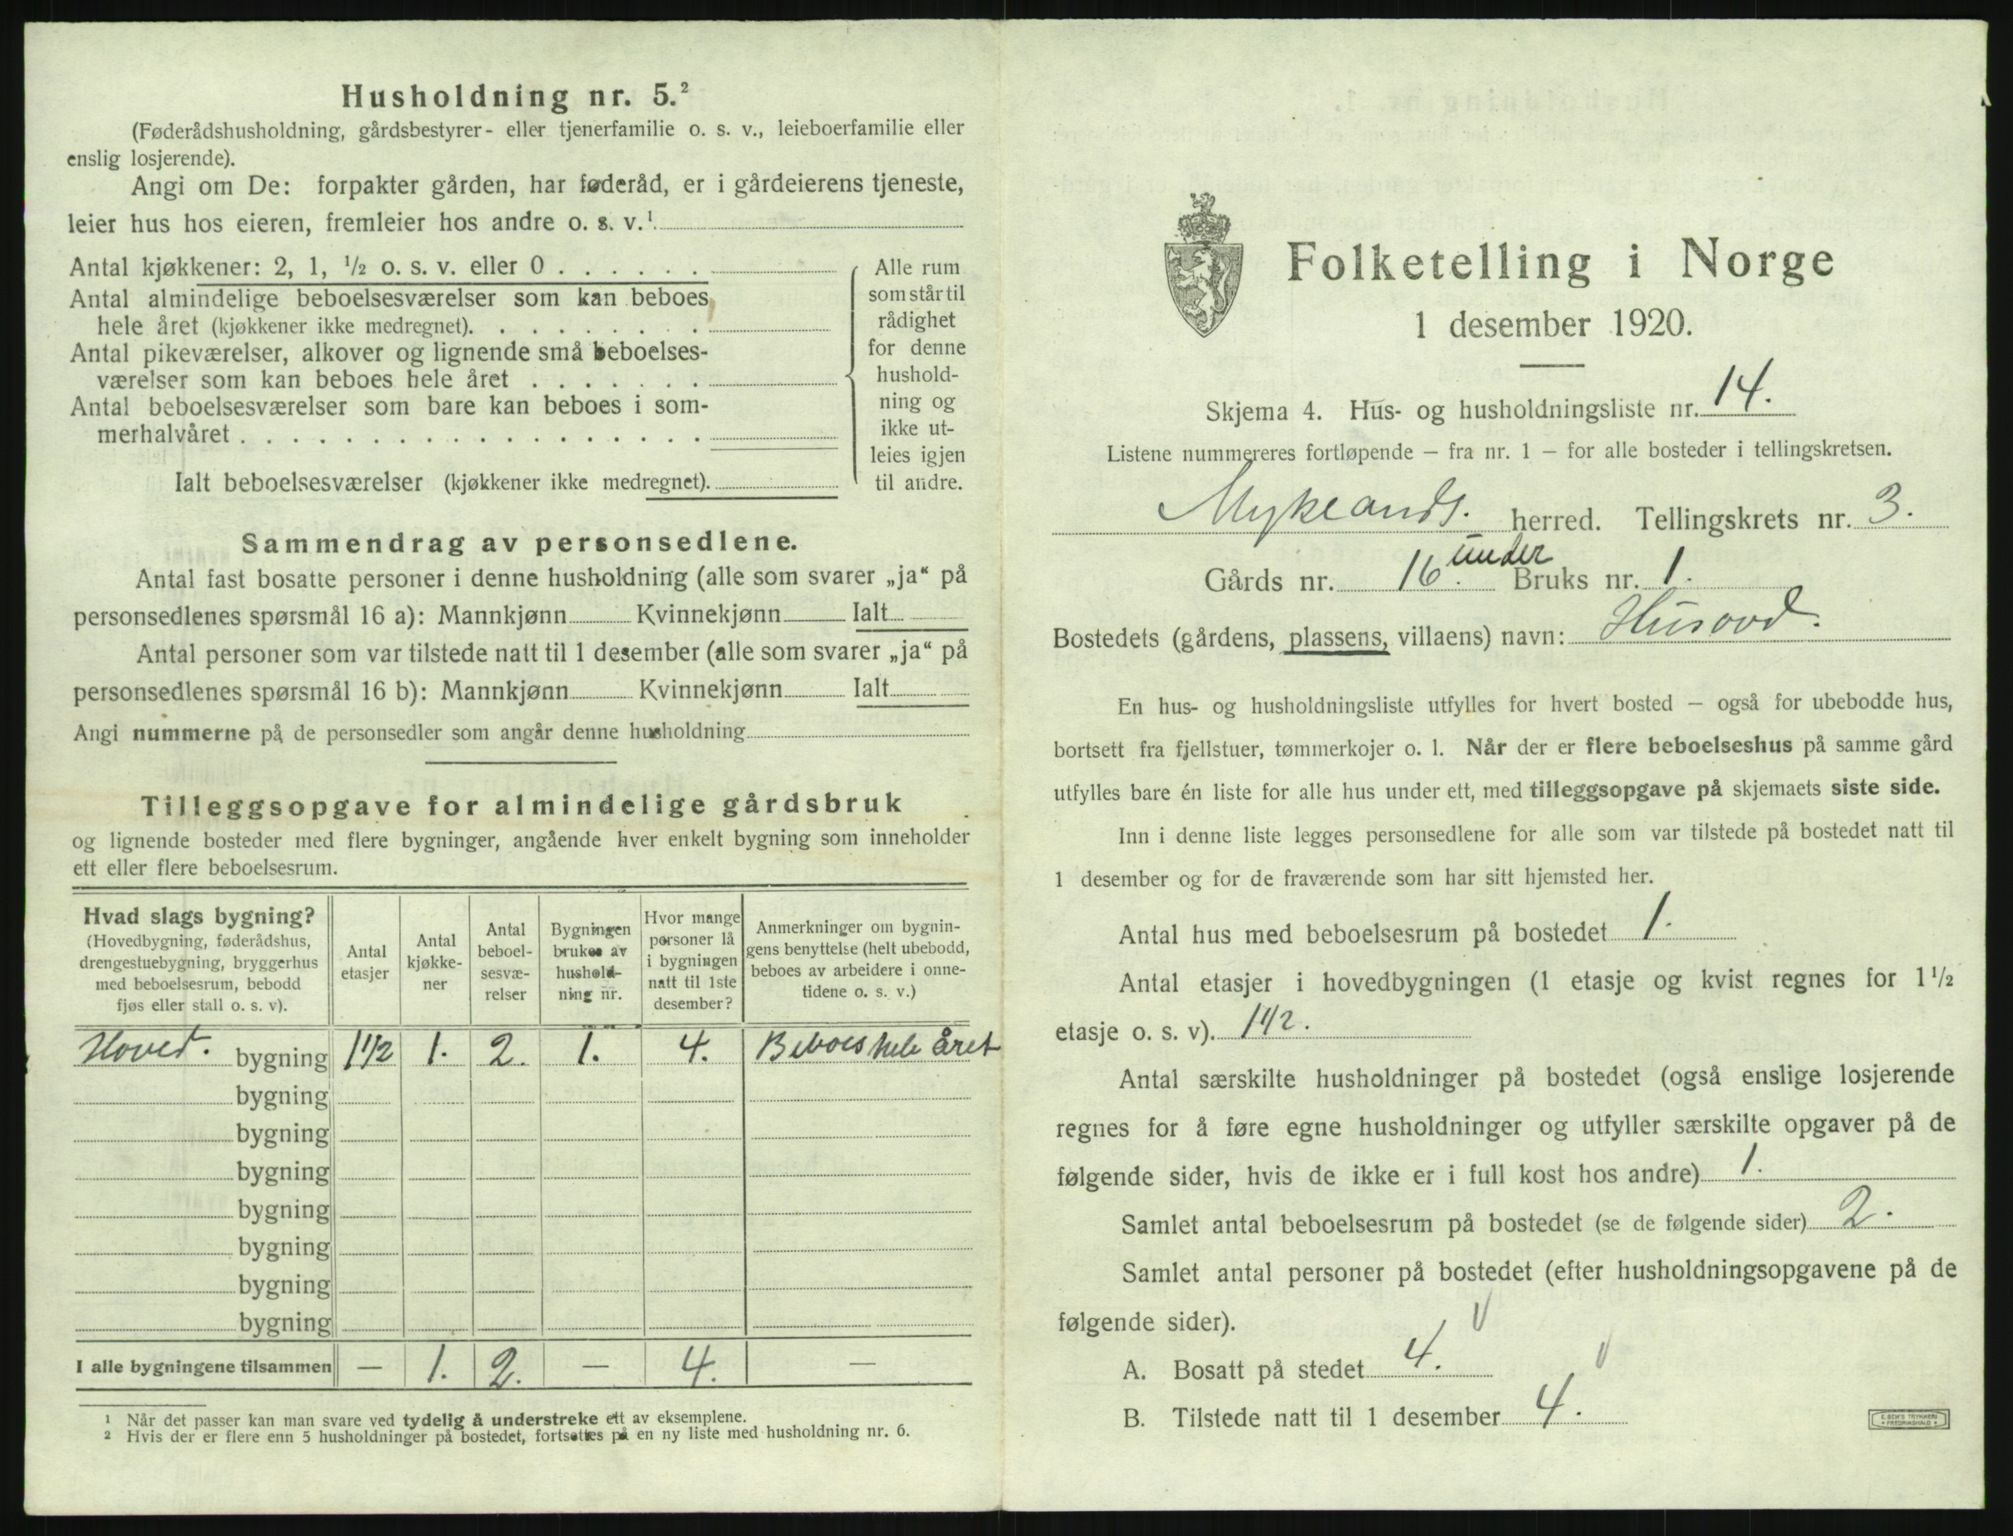 Husholdning nr. 5.²
(Føderådshusholdning, gårdsbestyrer- eller tjenerfamilie o. s. v., leieboerfamilie eller
enslig losjerende).
Angi om De: forpakter gården, har føderåd, er i gårdeierens tjeneste,
leier hus hos eieren, fremleier hos andre o. s. v.¹
Antal kjøkkener: 2, 1, ½ o. s. v. eller 0
Antal almindelige beboelsesværelser som kan beboes
hele året (kjøkkener ikke medregnet).
Antal pikeværelser, alkover og lignende små beboelses-
værelser som kan beboes hele året
Antal beboelsesværelser som bare kan beboes i som-
merhalvåret
Ialt beboelsesværelser (kjøkkener ikke medregnet).
Alle rum
som står til
rådighet
for denne
hushold-
ning og
ikke ut-
leies igjen
til andre.
Sammendrag av personsedlene.
Antal fast bosatte personer i denne husholdning (alle som svarer „ja“ på
personsedlenes spørsmål 16 a): Mannkjønn Kvinnekjønn Ialt
Antal personer som var tilstede natt til 1 desember (alle som svarer „ja“ på
personsedlenes spørsmål 16 b): Mannkjønn Kvinnekjønn Ialt
Angi nummerne på de personsedler som angår denne husholdning
Tilleggsopgave for almindelige gårdsbruk
og lignende bosteder med flere bygninger, angående hver enkelt bygning som inneholder
ett eller flere beboelsesrum.
Hvad slags bygning?
(Hovedbygning, føderådshus,
drengestuebygning, bryggerhus
med beboelsesrum, bebodd
fjøs eller stall o. s. v).
Antal
etasjer
Antal
kjøkke-
ner
Antal
beboel-
sesvæ-
relser
Bygningen
brukes av
hushold-
ning nr.
Hvor mange
personer lå
i bygningen
natt til 1ste
desember?
Anmerkninger om bygnin-
gens benyttelse (helt ubebodd,
beboes av arbeidere i onne-
tidene o. s. v.)
Hoved. bygning 1½ 1. 2. 1. 4. Beboes hele året
bygning
bygning
bygning
bygning
bygning
bygning
bygning
I alle bygningene tilsammen — 1. 2. — 4. —
¹ Når det passer kan man svare ved tydelig å understreke ett av eksemplene.
² Hvis der er flere enn 5 husholdninger på bostedet, fortsettes på en ny liste med husholdning nr. 6.
Folketelling i Norge
1 desember 1920.
Skjema 4. Hus- og husholdningsliste nr. 14.
Listene nummereres fortløpende – fra nr. 1 – for alle bosteder i tellingskretsen.
Myklands. herred. Tellingskrets nr. 3.
Gårds nr. 16. under Bruks nr. 1.
Bostedets (gårdens, plassens, villaens) navn:
En hus- og husholdningsliste utfylles for hvert bosted – også for ubebodde hus,
bortsett fra fjellstuer, tømmerkojer o. l. Når der er flere beboelseshus på samme gård
utfylles bare én liste for alle hus under ett, med tilleggsopgave på skjemaets siste side.
Inn i denne liste legges personsedlene for alle som var tilstede på bostedet natt til
1 desember og for de fraværende som har sitt hjemsted her.
Antal hus med beboelsesrum på bostedet 1.
Antal etasjer i hovedbygningen (1 etasje og kvist regnes for 1½
etasje o. s. v). 1½.
Antal særskilte husholdninger på bostedet (også enslige losjerende
regnes for å føre egne husholdninger og utfyller særskilte opgaver på de
følgende sider, hvis de ikke er i full kost hos andre) 1.
Samlet antal beboelsesrum på bostedet (se de følgende sider) 2.
Samlet antal personer på bostedet (efter husholdningsopgavene på de
følgende sider).
A. Bosatt på stedet 4.
B. Tilstede natt til 1 desember 4.